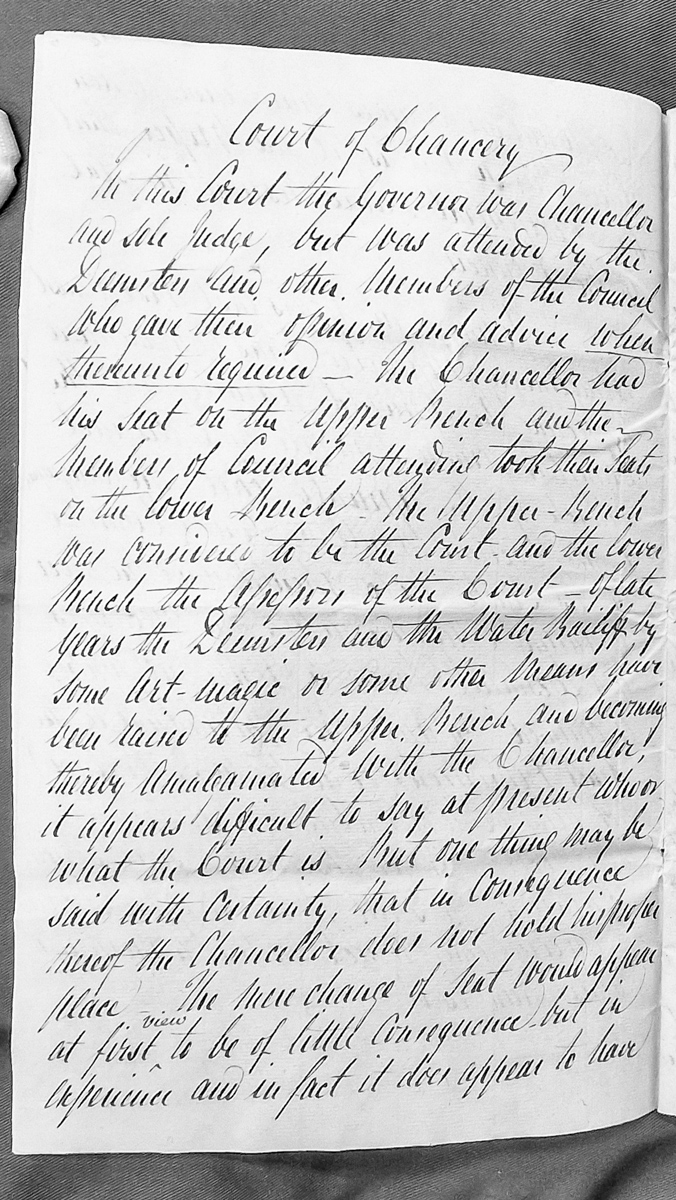 Court of Chancery
In this Court the Governor was Chancellor
and sole Judge, but was attended by the
Deemsters and other Members of the Council
who gave their opinion and advice when
thereunto required — The Chancellor had
his Seat on the Upper Bench and the
Members of Council attending took their Seats
on the lower Bench — The Upper-Bench
was considered to be the Court and the lower
Bench the Assessors of the Court — of late
years the Deemsters and the Water Bailiff by
some Art-magic or some other means have
been raised to the Upper Bench and becoming
thereby Amalgamated with the Chancellor,
it appears difficult to say at present who or
what the Court is But one thing may be
said with Certainty, that in Consequence
thereof the Chancellor does not hold his proper
place — The mere change of Seat would appear
at first view to be of little Consequence but in
experience and in fact it does appear to have